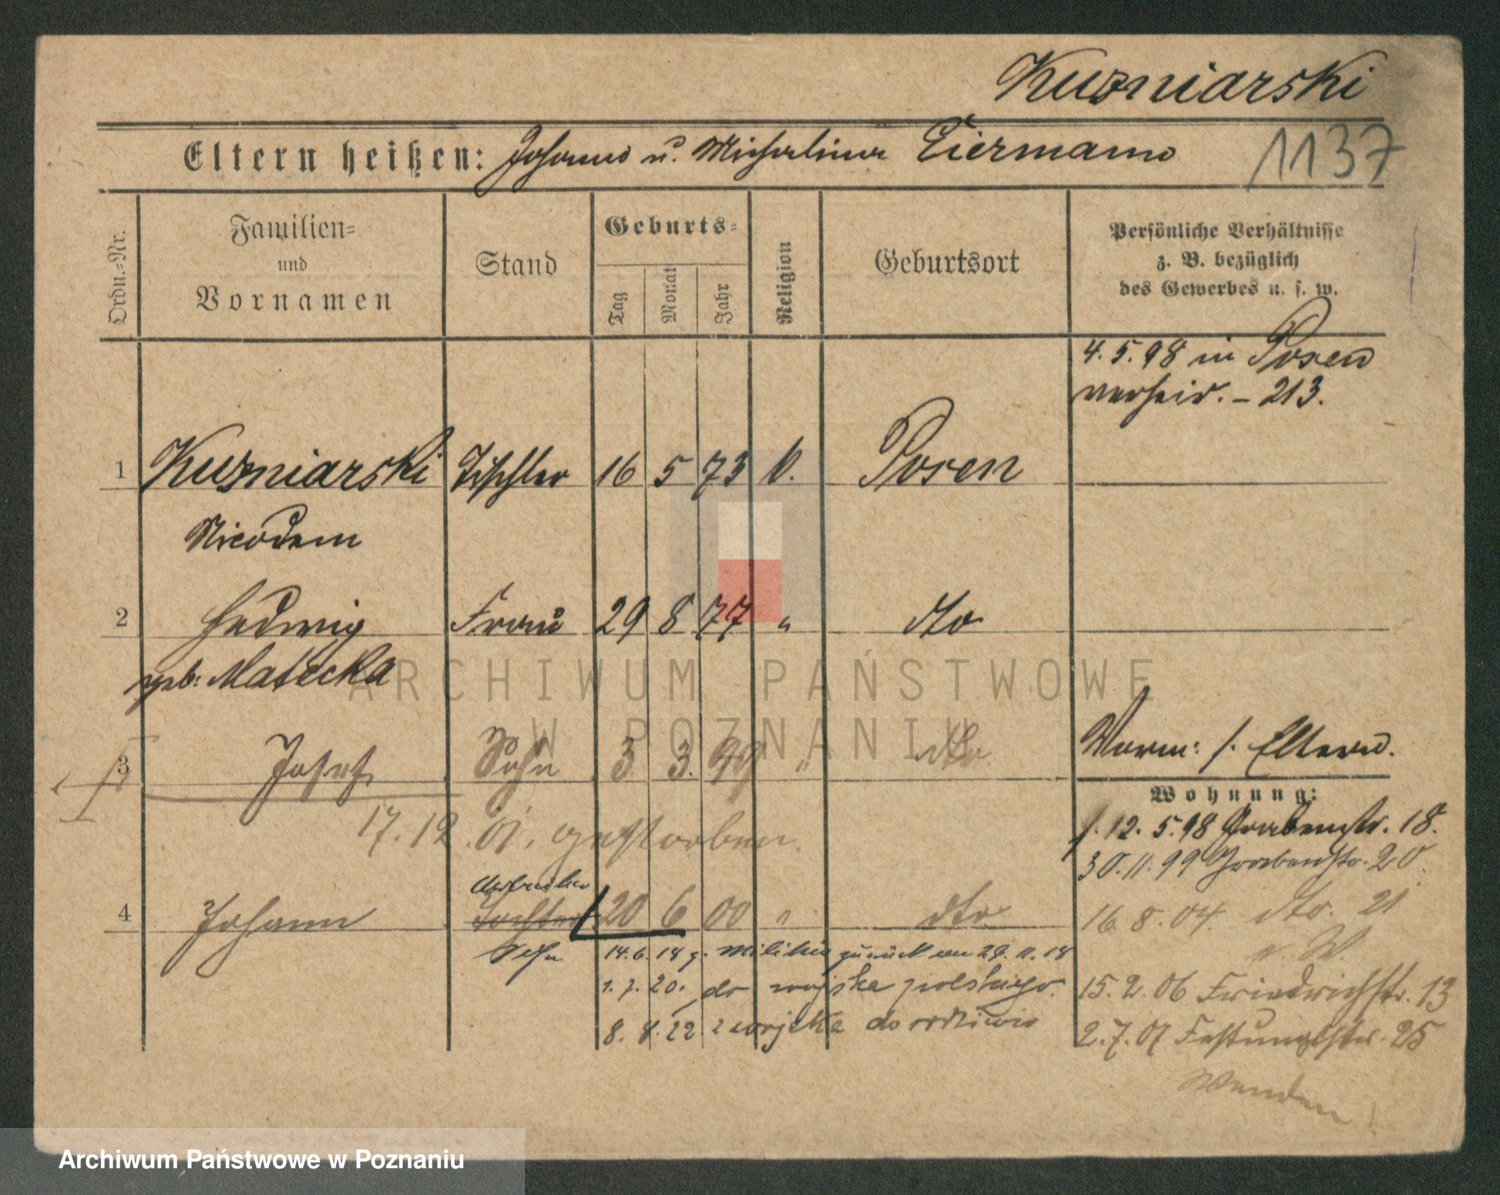 Kuzniarski
Eltern heißen: Johann u. Michalina Eiermann 1137
Ordn.=Nr.
Familien=
und
Vornamen
Stand
Geburts=
Tag
Monat
Jahr
Religion
Geburtsort
Persönliche Verhältnisse
z. B. bezüglich
des Gewerbes u. s. w.
4.5.98 in Posen
verheir. – 213.
1 Kuzniarski Tischler 16 5 73 k. Posen
Nicodem
2 Hedwig Frau 29 8 77 " dto
geb: Matecka
3 Josef Sohn 3 3. 99 " dto
Vorm: s. Eltern.
17.12.01. gestorben.
Wohnung:
12.5.98 Grabenstr. 18.
30.11.99 Grabenstr. 20
4 Johann Tochter 20 6 00 " dto
Sohn
16.8.04. dto. 21
n. W.
14.6.18 z. Militär zurück am 29.11.18
1.7.20. do wojska polskiego.
8.8.22 z wojska do
15.2.06 Friedrichstr. 13
2.7.07 Festungsstr. 25
Wenden
ARCHIWUM PAŃSTWOWE
W POZNANIU
Archiwum Państwowe w Poznaniu